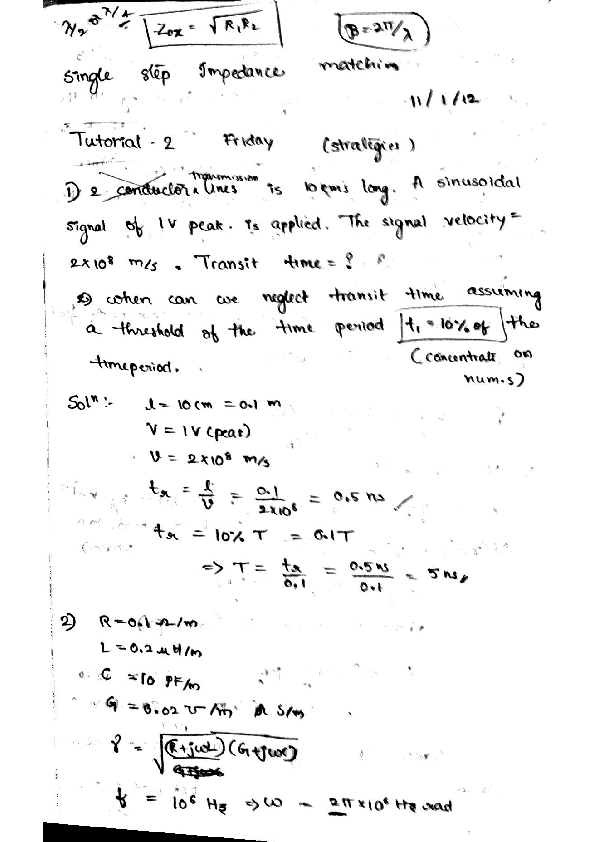 λ/2 or λ/4 Zox = √R1R2 β = 2π/λ
single step Impedance matching
11/1/12
Tutorial - 2 Friday (strategies)
1) 2 conductor transmission lines is 10 cm's long. A sinusoidal
signal of 1V peak. is applied. The signal velocity =
2×10⁸ m/s. Transit time = ?
2) when can we neglect transit time assuming
a threshold of the time period t₁ = 10% of the
timeperiod. (concentrate on
num.s)
Solⁿ :- l = 10 cm = 0.1 m
V = 1V (peak)
v = 2×10⁸ m/s
tr = l/v = 0.1/2×10⁸ = 0.5 ns
tr = 10% T = 0.1T
=> T = tr/0.1 = 0.5 ns/0.1 = 5 ns
2) R = 0.1 Ω/m
L = 0.2 μH/m
C = 10 pF/m
G = 0.02 ℧/m or S/m
γ = √(R+jωL)(G+jωc)
f = 10⁶ Hz => ω = 2π×10⁶ Hz rad